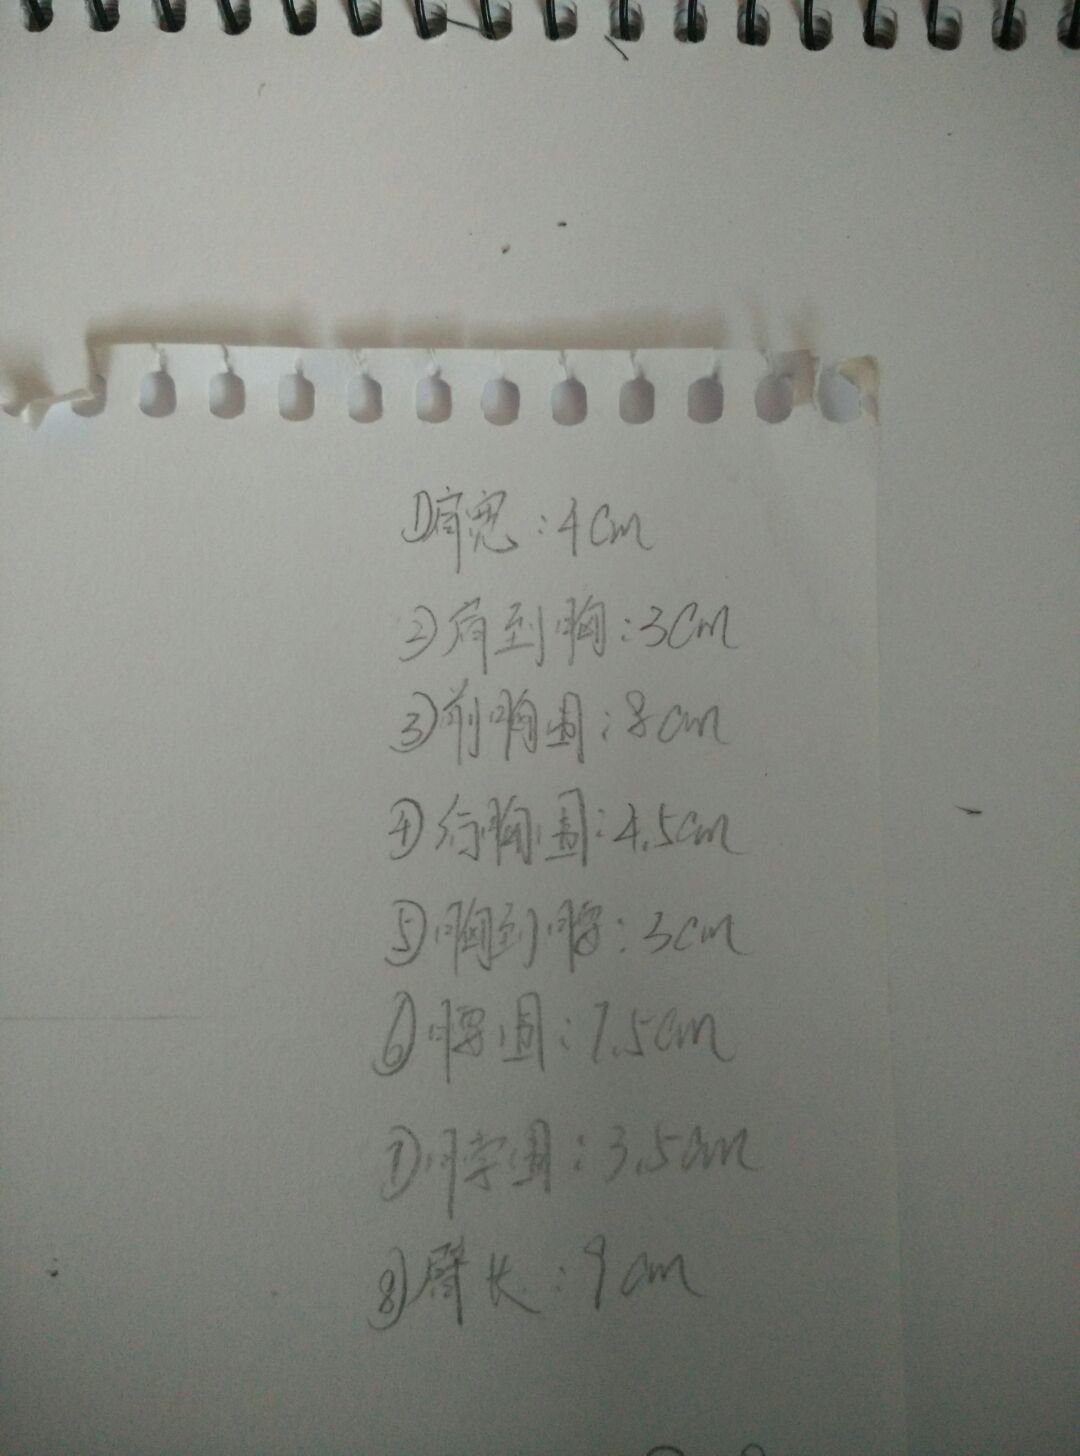 ①肩宽:4cm
②肩到胸:3cm
③前胸围:8cm
④后胸围:4.5cm
⑤胸到腰:3cm
⑥腰围:7.5cm
⑦腕围:3.5cm
⑧臂长:9cm